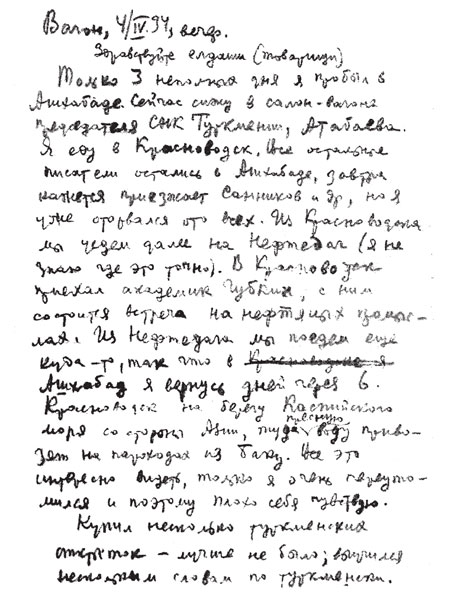 Вагон, 4/IV.34, вечер.
Здравствуйте елдаши (товарищи)
Только 3 неполных дня я пробыл в
Ашхабаде. Сейчас сижу в салон-вагоне
председателя СНК Туркмении, Атабаева.
Я еду в Красноводск. Все остальные
писатели остались в Ашхабаде, завтра
кажется приезжает Санников и др, но я
уже оторвался ото всех. Из Красноводска
мы уедем далее на Нефтедаг (я не
знаю где это точно). В Красноводск
приехал академик Губкин, с ним
состоится встреча на нефтяных промыс-
лах. Из Нефтедага мы поедем еще
куда-то, так что в Красноводск я
Ашхабад я вернусь дней через 6.
Красноводск на берегу Каспийского
моря со стороны Азии, туда пресную воду приво-
зят на пароходах из Баку. Все это
интересно видеть, только я очень переуто-
мился и поэтому плохо себя чувствую.
Купил несколько туркменских
открыток – лучше не было; выучился
нескольким словам по туркменски.